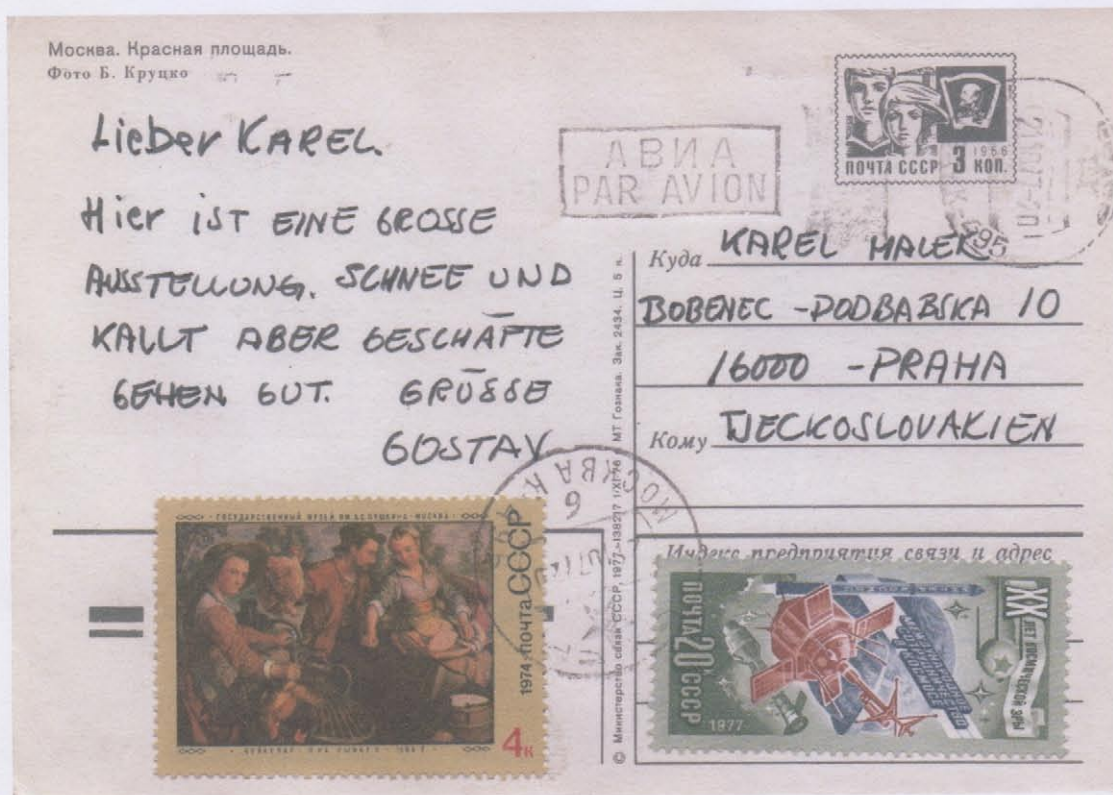 Москва. Красная площадь.
Фото Б. Круцко
Lieber KAREL.
Hier iST EINE GROSSE
AUSSTELLUNG. SCHNEE UND
KALLT ABER GESCHÄFTE
GEHEN GUT. GRÜSSE
GOSTAV
АВИА
PAR AVION
ПОЧТА СССР 3 КОП.
1966
Куда KAREL MALEK
BOBENEC - PODBABSKA 10
16000 - PRAHA
Кому TJECKOSLOVAKIEN
Индекс предприятия связи и адрес
© Министерство связи СССР, 1977. 138217 1/XI 76 МТ Гознака. Зак. 2434. Ц. 5 к.
МОСКВА
6
ГОСУДАРСТВЕННЫЙ МУЗЕЙ ИМ. А.С. ПУШКИНА · МОСКВА
1974 ПОЧТА СССР
4к
ПОЧТА 20к СССР
1977
XX ЛЕТ КОСМИЧЕСКОЙ ЭРЫ
МЕЖДУНАРОДНОЕ СОТРУДНИЧЕСТВО В КОСМОСЕ